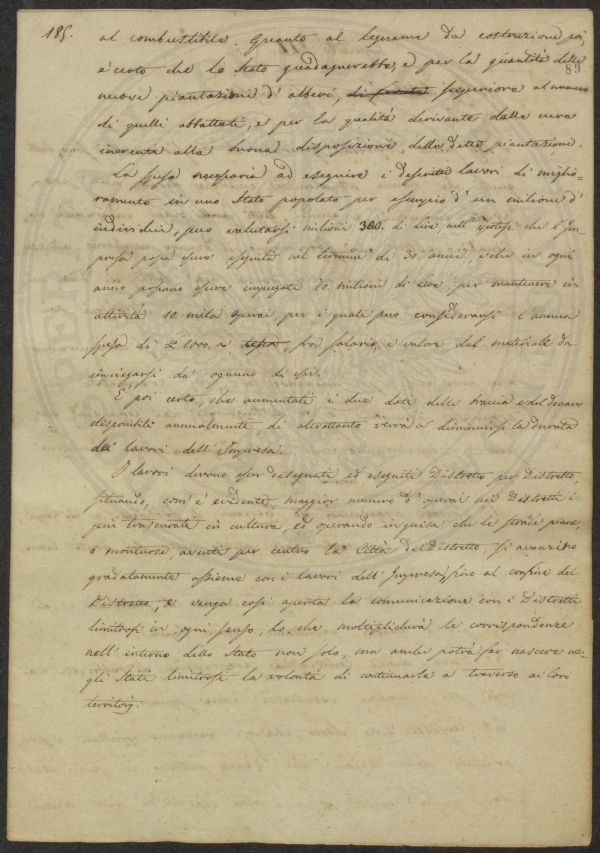 185.
al combustibile. Quanto al legname da costruzione poi
89
è certo che lo Stato guadagnerebbe, e per la quantità delle
nuove piantazioni d'alberi, superiore al numero
di quelli abbattuti, e per la qualità derivante dalla cura
inerente alla buona disposizione delle dette piantazioni.
La spesa necessaria ad eseguire i descritti lavori di miglio-
ramento in uno Stato popolato per esempio d'un milione d'
individui, può valutarsi milioni 300. di Lire, nell'ipotesi che l'Im-
presa possa essere eseguita nel termine di 30. anni, e che in ogni
anno possano essere impiegati 10. milioni di Lire, per mantenere in
attività 10. mila operai, per i quali può considerarsi l'annua
spesa di £ 1000. a testa, fra salario, e valore del materiale da
impiegarsi da ognuno di essi.
E poi certo, che aumentati i due dati delle braccia e del denaro
disponibili annualmente di altrettanto verrà a diminuirsi la durata
dei lavori dell'Impresa.
I lavori devono esser disegnati ed eseguiti Distretto per Distretto,
situando, com'è evidente, maggior numero d'operai nei Distretti i
più trascurati in cultura, ed operando in guisa che le strade piane,
o montuose, aventi per centro la Città del Distretto, si avanzino
gradatamente assieme con i lavori dell'Impresa, fino al confine del
Distretto, e venga così aperta la comunicazione con i Distretti
limitrofi in ogni senso, lo che moltiplicherà le corrispondenze
nell'interno dello Stato non solo, ma anche potrà far nascere ne-
gli Stati limitrofi la volontà di continuarla a traverso ai loro
territorj.